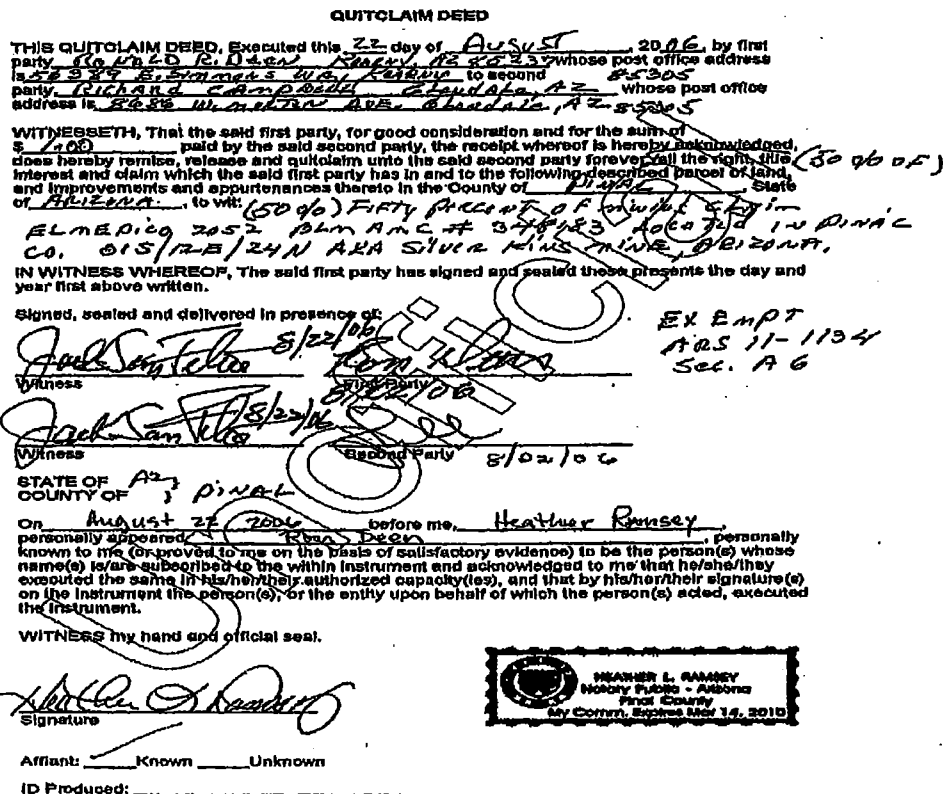 QUITCLAIM DEED
THIS QUITCLAIM DEED, Executed this 22 day of August, 2006, by first
party, Ronald R. Deen Kearny, AZ 85237 whose post office address
is 50389 E. Simmons Kearny to second 85305
party, Richard Campbell Glendale, AZ whose post office
address is 8686 W. Ave. Glendale, AZ 85305
WITNESSETH, That the said first party, for good consideration and for the sum of
$ 1.00 paid by the said second party, the receipt whereof is hereby acknowledged,
does hereby remise, release and quitclaim unto the said second party forever, all the right, title (50 % OF)
interest and claim which the said first party has in and to the following described parcel of land,
and improvements and appurtenances thereto in the County of PINAL, State
of ARIZONA, to wit: (50 %) FIFTY PERCENT OF MINING CLAIM
BLM AMC # LOCATED IN PINAL
CO. 01S/12E/24N AKA SILVER KING MINE, ARIZONA.
IN WITNESS WHEREOF, The said first party has signed and sealed these presents the day and
year first above written.
Signed, sealed and delivered in presence of:
EXEMPT
ARS 11-1134
Sec. A 6
8/22/06
Witness First Party
8/22/06
Witness Second Party 8/02/06
STATE OF AZ }
COUNTY OF } PINAL
On August 22 2006 before me, Heather Ramsey,
personally appeared Ron Deen, personally
known to me (or proved to me on the basis of satisfactory evidence) to be the person(s) whose
name(s) is/are subscribed to the within instrument and acknowledged to me that he/she/they
executed the same in his/her/their authorized capacity(ies), and that by his/her/their signature(s)
on the instrument the person(s), or the entity upon behalf of which the person(s) acted, executed
the instrument.
WITNESS my hand and official seal.
HEATHER L. RAMSEY
Notary Public - Arizona
Pinal County
My Comm. Expires Mar 14, 2010
Signature
Affiant: Known Unknown
ID Produced:
Unofficial